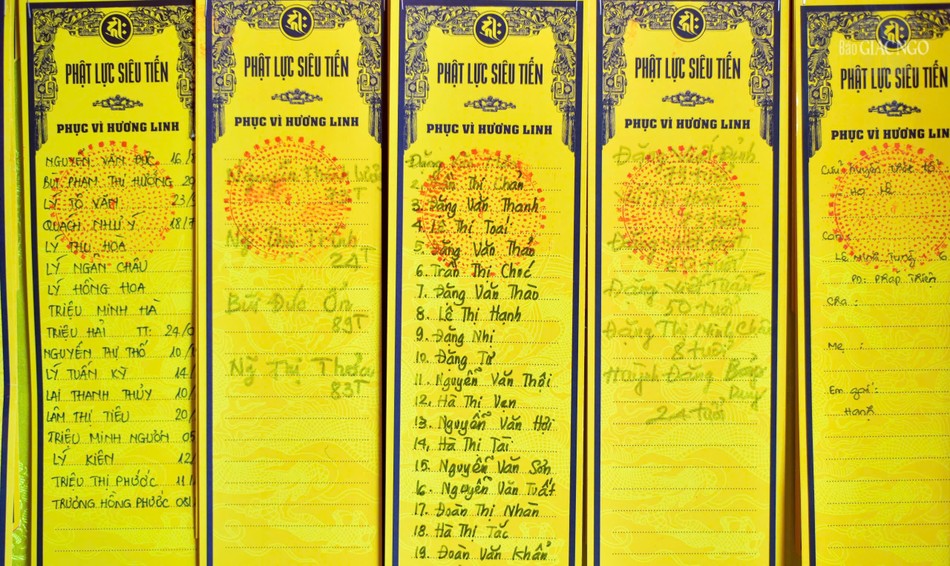 Báo GIÁC NGỘ
PHẬT LỰC SIÊU TIẾN
PHỤC VÌ HƯƠNG LINH
NGUYỄN VĂN ĐỨC 16/8
BÙI PHAN THỊ HƯƠNG 20
LÝ TÔ VĂN 23/
QUÁCH NHƯ Ý 18/7
LÝ THU HÒA
LÝ NGÂN CHÂU
LÝ HỒNG HOA
TRIỆU MINH HÀ
TRIỆU HẢI TT: 24/0
NGUYỄN THƯ THỐ 10/
LÝ TUẤN KỲ 14/
LAI THANH THỦY 10/
LÂM THỊ TIẾU 20/
TRIỆU MINH NGUƠN 05
LÝ KIÊN 12/
TRIỆU THỊ PHƯỚC 11/
TRƯƠNG HỒNG PHƯỚC 08/
PHẬT LỰC SIÊU TIẾN
PHỤC VÌ HƯƠNG LINH
Nguyễn
24T
Bùi Đức Ổn
89T
Ng Thị
83T
PHẬT LỰC SIÊU TIẾN
PHỤC VÌ HƯƠNG LINH
Đặng
2. Thị Chản
3. Đặng Văn Thanh
4. Lê Thị Toại
5. Đặng Văn Thảo
6. Trần Thị Chọc
7. Đặng Văn Thào
8. Lê Thị Hạnh
9. Đặng Nhị
10. Đặng Tư
11. Nguyễn Văn Thôi
12. Hà Thị Vẹn
13. Nguyễn Văn Hợi
14. Hà Thị Tài
15. Nguyễn Văn Sơn
16. Nguyễn Văn Tuất
17. Đoàn Thị Nhàn
18. Hà Thị Tắc
19. Đoàn Văn Khẩn
PHẬT LỰC SIÊU TIẾN
PHỤC VÌ HƯƠNG LINH
Đặng Viết Đỉnh
Đặng Viết Tuấn
50 tuổi
Đặng Thị Minh Châu
8 tuổi
Huỳnh Đặng Bảo
Duy
24 tuổi
PHẬT LỰC SIÊU TIẾN
PHỤC VÌ HƯƠNG LINH
Cửu huyền thất tổ
Họ Lê
Con
Lê Minh 6
PD: Pháp Thiên
Cha:
Mẹ:
Em gái:
Hạnh